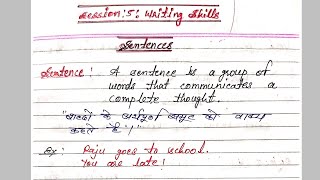 Session: 5: Writing Skills
Sentences
Sentence: A sentence is a group of
words that communicates a
complete thought.
"शब्दों के अर्थपूर्ण समूह को वाक्य
कहते हैं।"
Ex: Raju goes to school.
You are late!